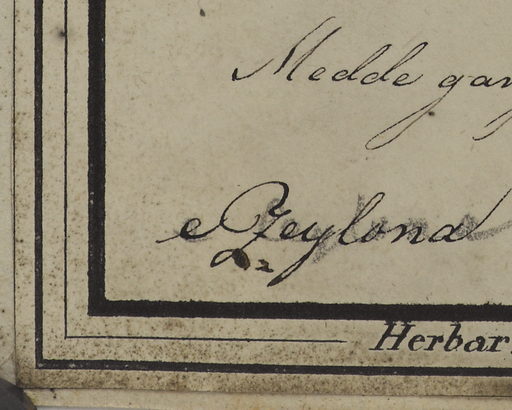 Medde gan
e Zeylona
Herbar